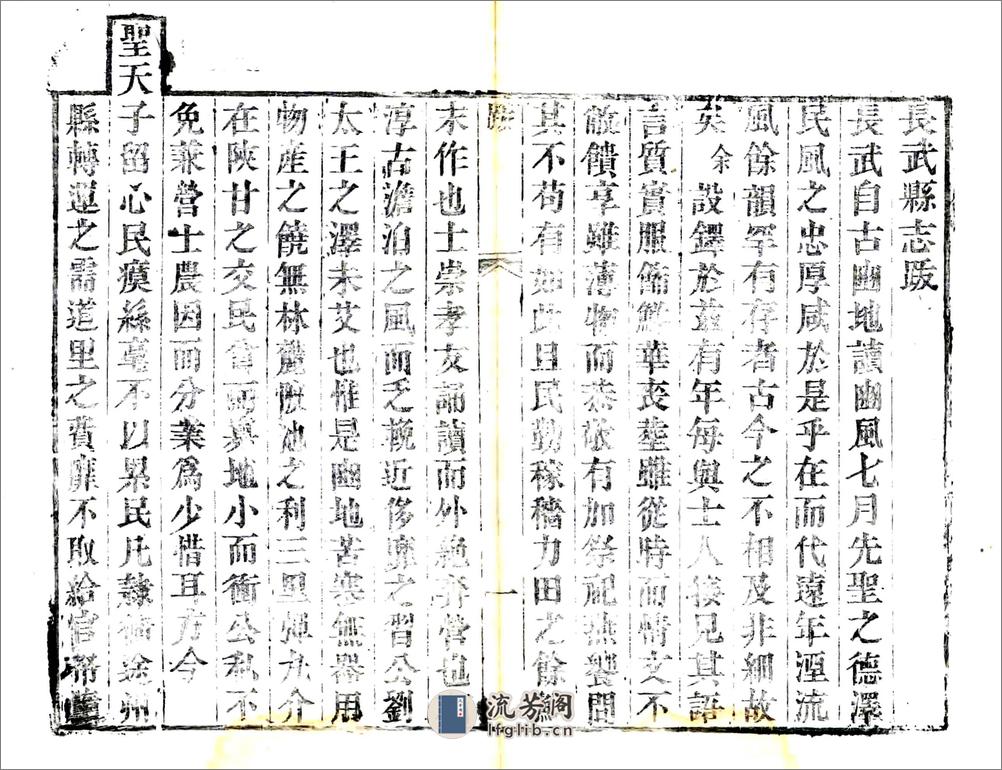 長武縣志䟦
長武自古豳地讀豳風七月先聖之德澤
民風之忠厚咸於是乎在而代遠年湮流
風餘韻罕有存者古今之不相及非細故
矣余設鐸於茲有年每與士人接見其語
言質實服餙鮮華喪塟雖從時而情文不
敝饋享雖薄物而恭敬有加祭祀燕饗問
其不苟有如此且民勤稼穡力田之餘無
䟦
一
末作也士崇孝友誦讀而外絶奔營也
淳古澹泊之風而乏挽近侈靡之習公劉
太王之澤未艾也惟是豳地苦寒無器用
物產之饒無林麓陂池之利三里彈丸介
在陝甘之交民貧而異地小而衝公私不
免兼營士農因而分業爲少惜耳方今
聖天
子留心民瘼絲毫不以累民凡隸衝途州
縣轉運之需道里之費靡不取給官帑
流芳閣
lfglib.cn